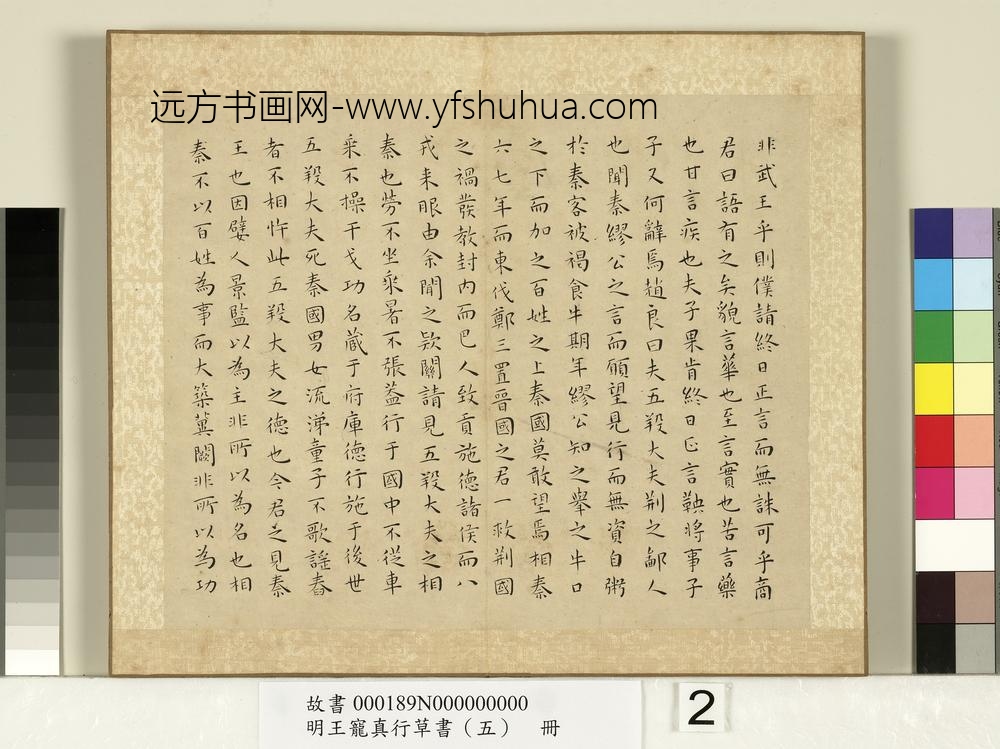 远方书画网-www.yfshuhua.com
非武王乎則僕請終日正言而無誅可乎商
君曰語有之矣貌言華也至言實也苦言藥
也甘言疾也夫子果肯終日正言鞅將事子
子又何辭焉趙良曰夫五羖大夫荆之鄙人
也聞秦繆公之言而願望見行而無資自粥
於秦客被褐食牛期年繆公知之舉之牛口
之下而加之百姓之上秦國莫敢望焉相秦
六七年而東伐鄭三置晉國之君一救荆國
之禍發教封内而巴人致貢施德諸侯而八
戎来服由余聞之欵關請見五羖大夫之相
秦也劳不坐乘暑不張葢行于國中不從車
乘不操干戈功名蔵于府庫德行施于後世
五羖大夫死秦國男女流涕童子不歌謡舂
者不相忤此五羖大夫之德也今君之見秦
王也因嬖人景監以為主非所以為名也相
秦不以百姓為事而大築冀闕非所以為功
故書 000189N000000000
明王寵真行草書（五） 冊
2